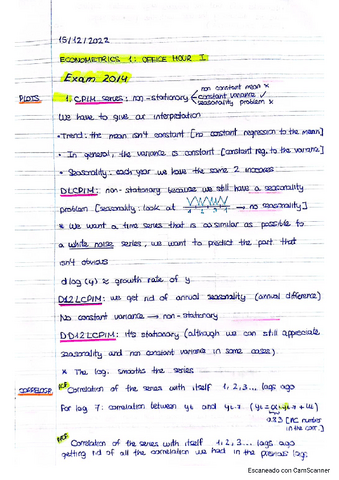 15/12/2022
ECONOMETRICS 1: OFFICE HOUR I
Exam 2014
PLOTS
1. CPIM series: non-stationary
non constant mean x
constant variance ✓
seasonality problem x
We have to give an interpretation
· Trend: the mean isn't constant [no constant regression to the mean]
· In general, the variance is constant [constant reg. to the variance]
· Seasonality: each year we have the same 2
DLCPIM: non-stationary because we still have a seasonality
problem [seasonality: look at → no seasonality]
* We want a time series that is as similar as possible to
a white noise series, we want to predict the part that
isn't obvious
dlog(y) ≈ growth rate of y
D12LCPIM: we get rid of annual seasonality (annual difference)
No constant variance → non-stationary
DD12LCPIM: it's stationary (although we can still appreciate
seasonality and non constant variance in some cases)
* The log. smooths the series
CORRELOGR.
ACF Correlation of the series with itself 1, 2, 3... lags ago
For lag 7: correlation between yt and yt-7
0.83 [AC number
in the corr.]
PACF Correlation of the series with itself 1, 2, 3... lags ago
getting rid of all the correlation we had in the previous lags
Escaneado con CamScanner